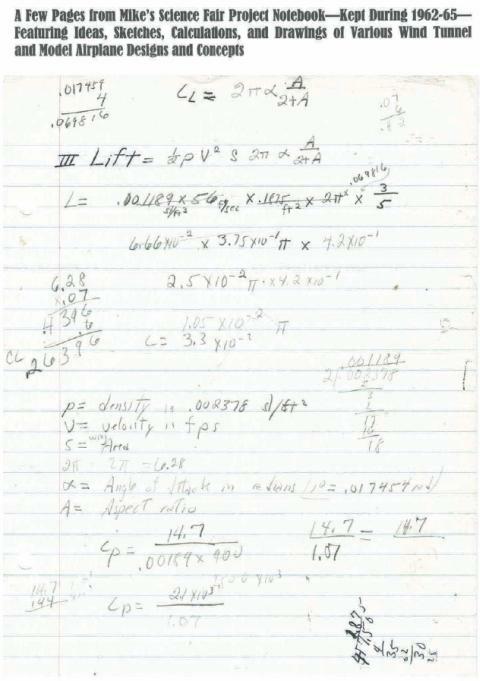 A Few Pages from Mike's Science Fair Project Notebook—Kept During 1962-65—
Featuring Ideas, Sketches, Calculations, and Drawings of Various Wind Tunnel
and Model Airplane Designs and Concepts
.017454
4
.069816
C_L = 2π α A/2+A
.07
III Lift = ½ρ V² S 2π α A/2+A
.069816
L= .001189 × 56 ft/sec × .1875 ft² × 2π × 3/5
sl/ft³
6.66×10⁻² × 3.75×10⁻¹ π × 4.2×10⁻¹
6.28
×.07
2.5×10⁻² π × 4.2×10⁻¹
.4396
.6
CL .26396
1.05 ×10⁻² π
L= 3.3 ×10⁻²
.001189
2/.002378
2
3
2
17
16
18
ρ= density is .002378 sl/ft³
V= velocity in fps
S = wing Area
2π 2π =6.28
α= Angle of attack in radians (1°= .017454 rad)
A= Aspect ratio
Cp= 14.7/.00189×900
14.7/1.07 = 14.7
14.7
144
Cp= 2.1×10³/1.07